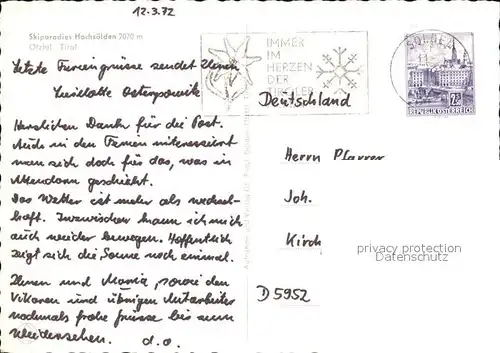 12.3.72
Skiparadies Hochsölden 2070 m
Ötztal Tirol
Letzte Feriengrüsse sendet Ihnen
Liselotte
Herzlichen Dank für die Post.
Auch in den Ferien interessiert
man sich doch für das, was in
Attendorn geschieht.
Das Wetter ist mehr als wechsel-
haft. Inzwischen kann ich mich
auch wieder bewegen. Hoffentlich
zeigt sich die Sonne noch einmal.
Ihnen und Maria, sowie den
Vikaren und übrigen Mitarbeiter
nochmals frohe Grüsse bis zum
Wiedersehen. d.o.
IMMER
IM
HERZEN
DER
TIROLER
SÖLDEN
REPUBLIK ÖSTERREICH
Deutschland
Herrn Pfarrer
Joh.
Kirch
D 5952
privacy protection
Datenschutz